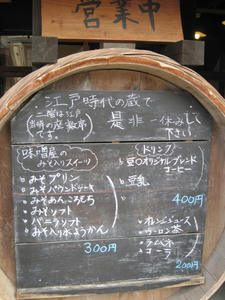 営業中
江戸時代の蔵で
二階は江戸
当時の座敷席
です。
是非一休みして
下さい
味噌屋の
みそ入りスイーツ
・みそプリン
・みそパウンドケーキ
・みそあんころもち
・みそソフト
・バニラソフト
・みそ入り水ようかん
300円
ドリンク
・豆○オリジナルブレンド
コーヒー
・豆乳
400円
・オレンジジュース
・ウーロン茶
・ラムネ
・コーラ
200円